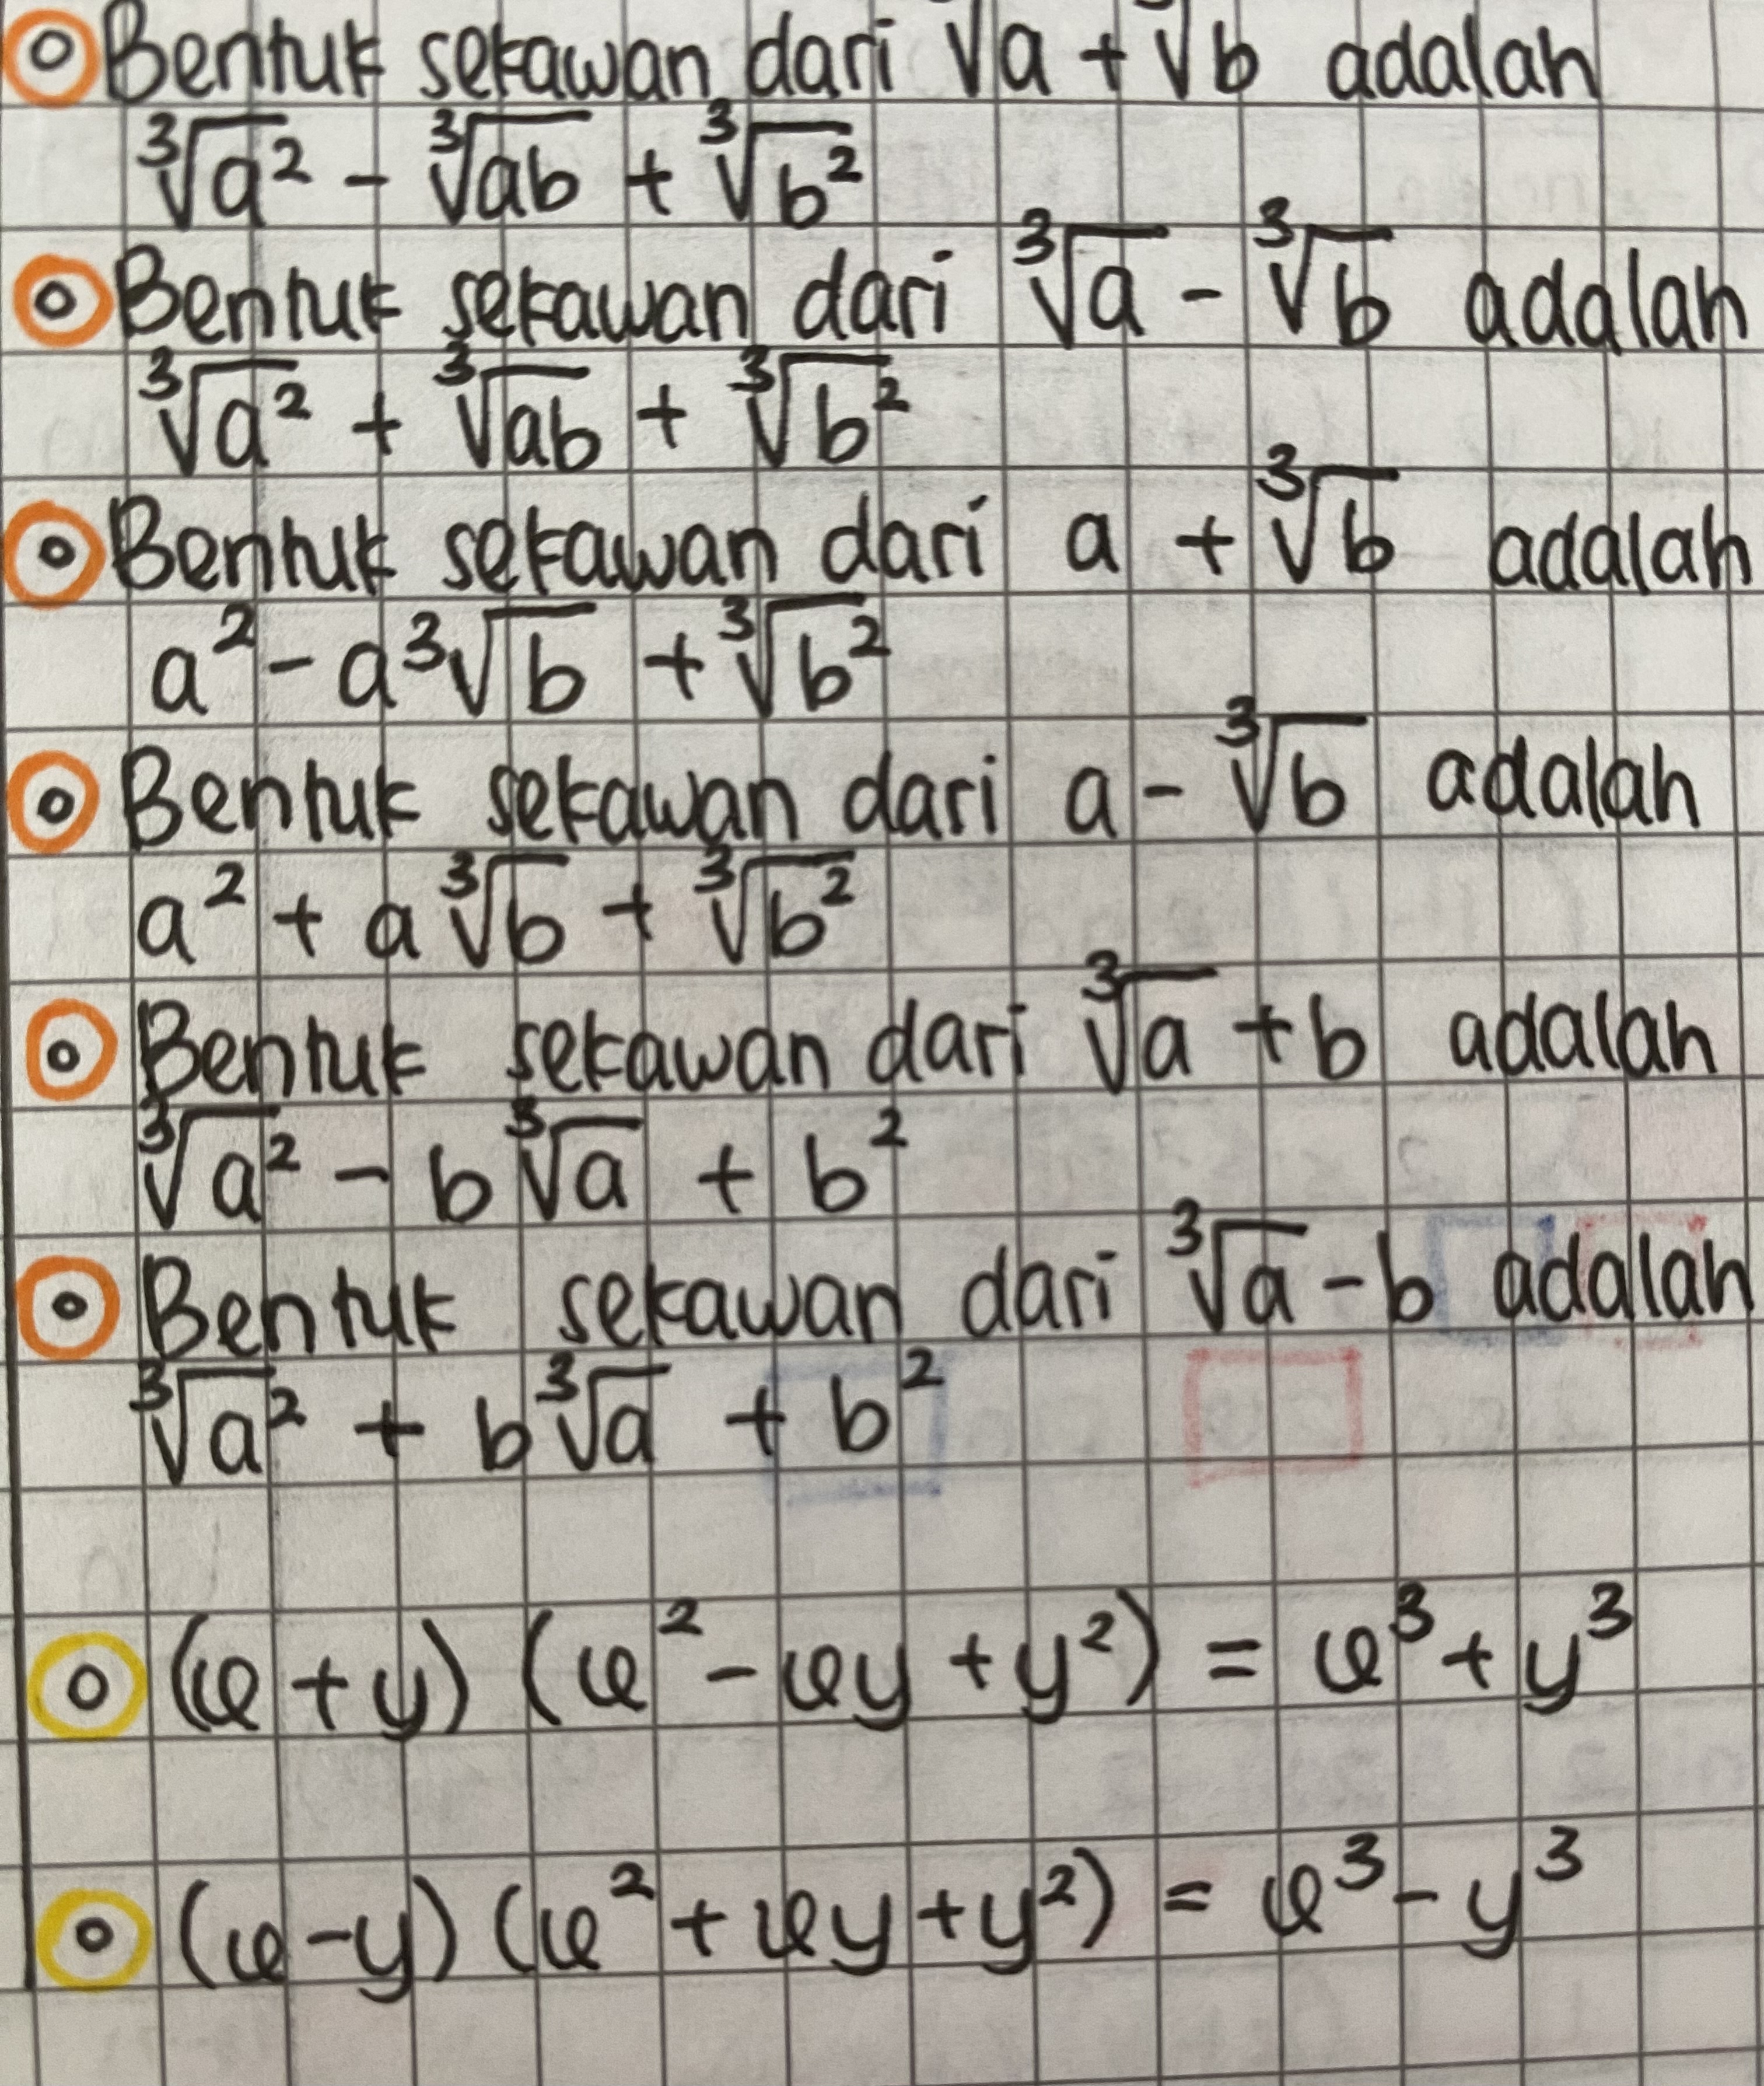 Bentuk sekawan dari ∛a + ∛b adalah
∛a² - ∛ab + ∛b²
Bentuk sekawan dari ∛a - ∛b adalah
∛a² + ∛ab + ∛b²
Bentuk sekawan dari a + ∛b adalah
a² - a ∛b + ∛b²
Bentuk sekawan dari a - ∛b adalah
a² + a ∛b + ∛b²
Bentuk sekawan dari ∛a + b adalah
∛a² - b ∛a + b²
Bentuk sekawan dari ∛a - b adalah
∛a² + b ∛a + b²
(x + y) (x² - xy + y²) = x³ + y³
(x - y) (x² + xy + y²) = x³ - y³